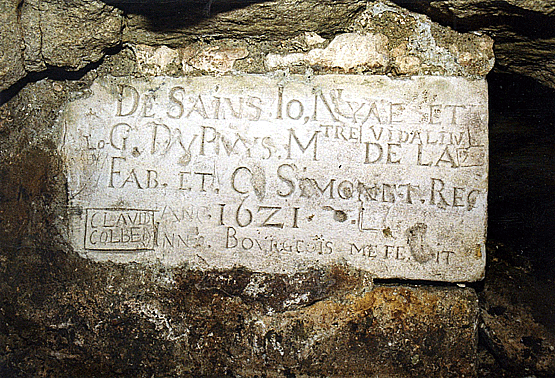 DE SAINS. IO, NYAE ET
LO. G. DVPVYS. MTRE VIDALIVI
DE LA
FAB. ET. C SIMONET. REC
CLAVD ANC 1621.
COLBE BOVRGEOIS ME FECIT